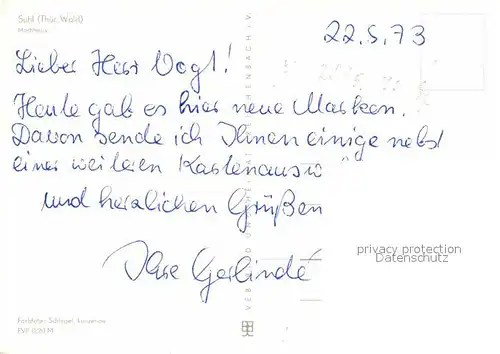 Suhl (Thür. Wald)
Hochhaus
22.5.73
Lieber Herr Vogt!
Heute gab es hier neue Marken.
Davon sende ich Ihnen einige nebst
einer weiteren Kartenausw
und herzlichen Grüßen
Ihre Gerlinde
privacy protection
Datenschutz
EVP 0,20 M